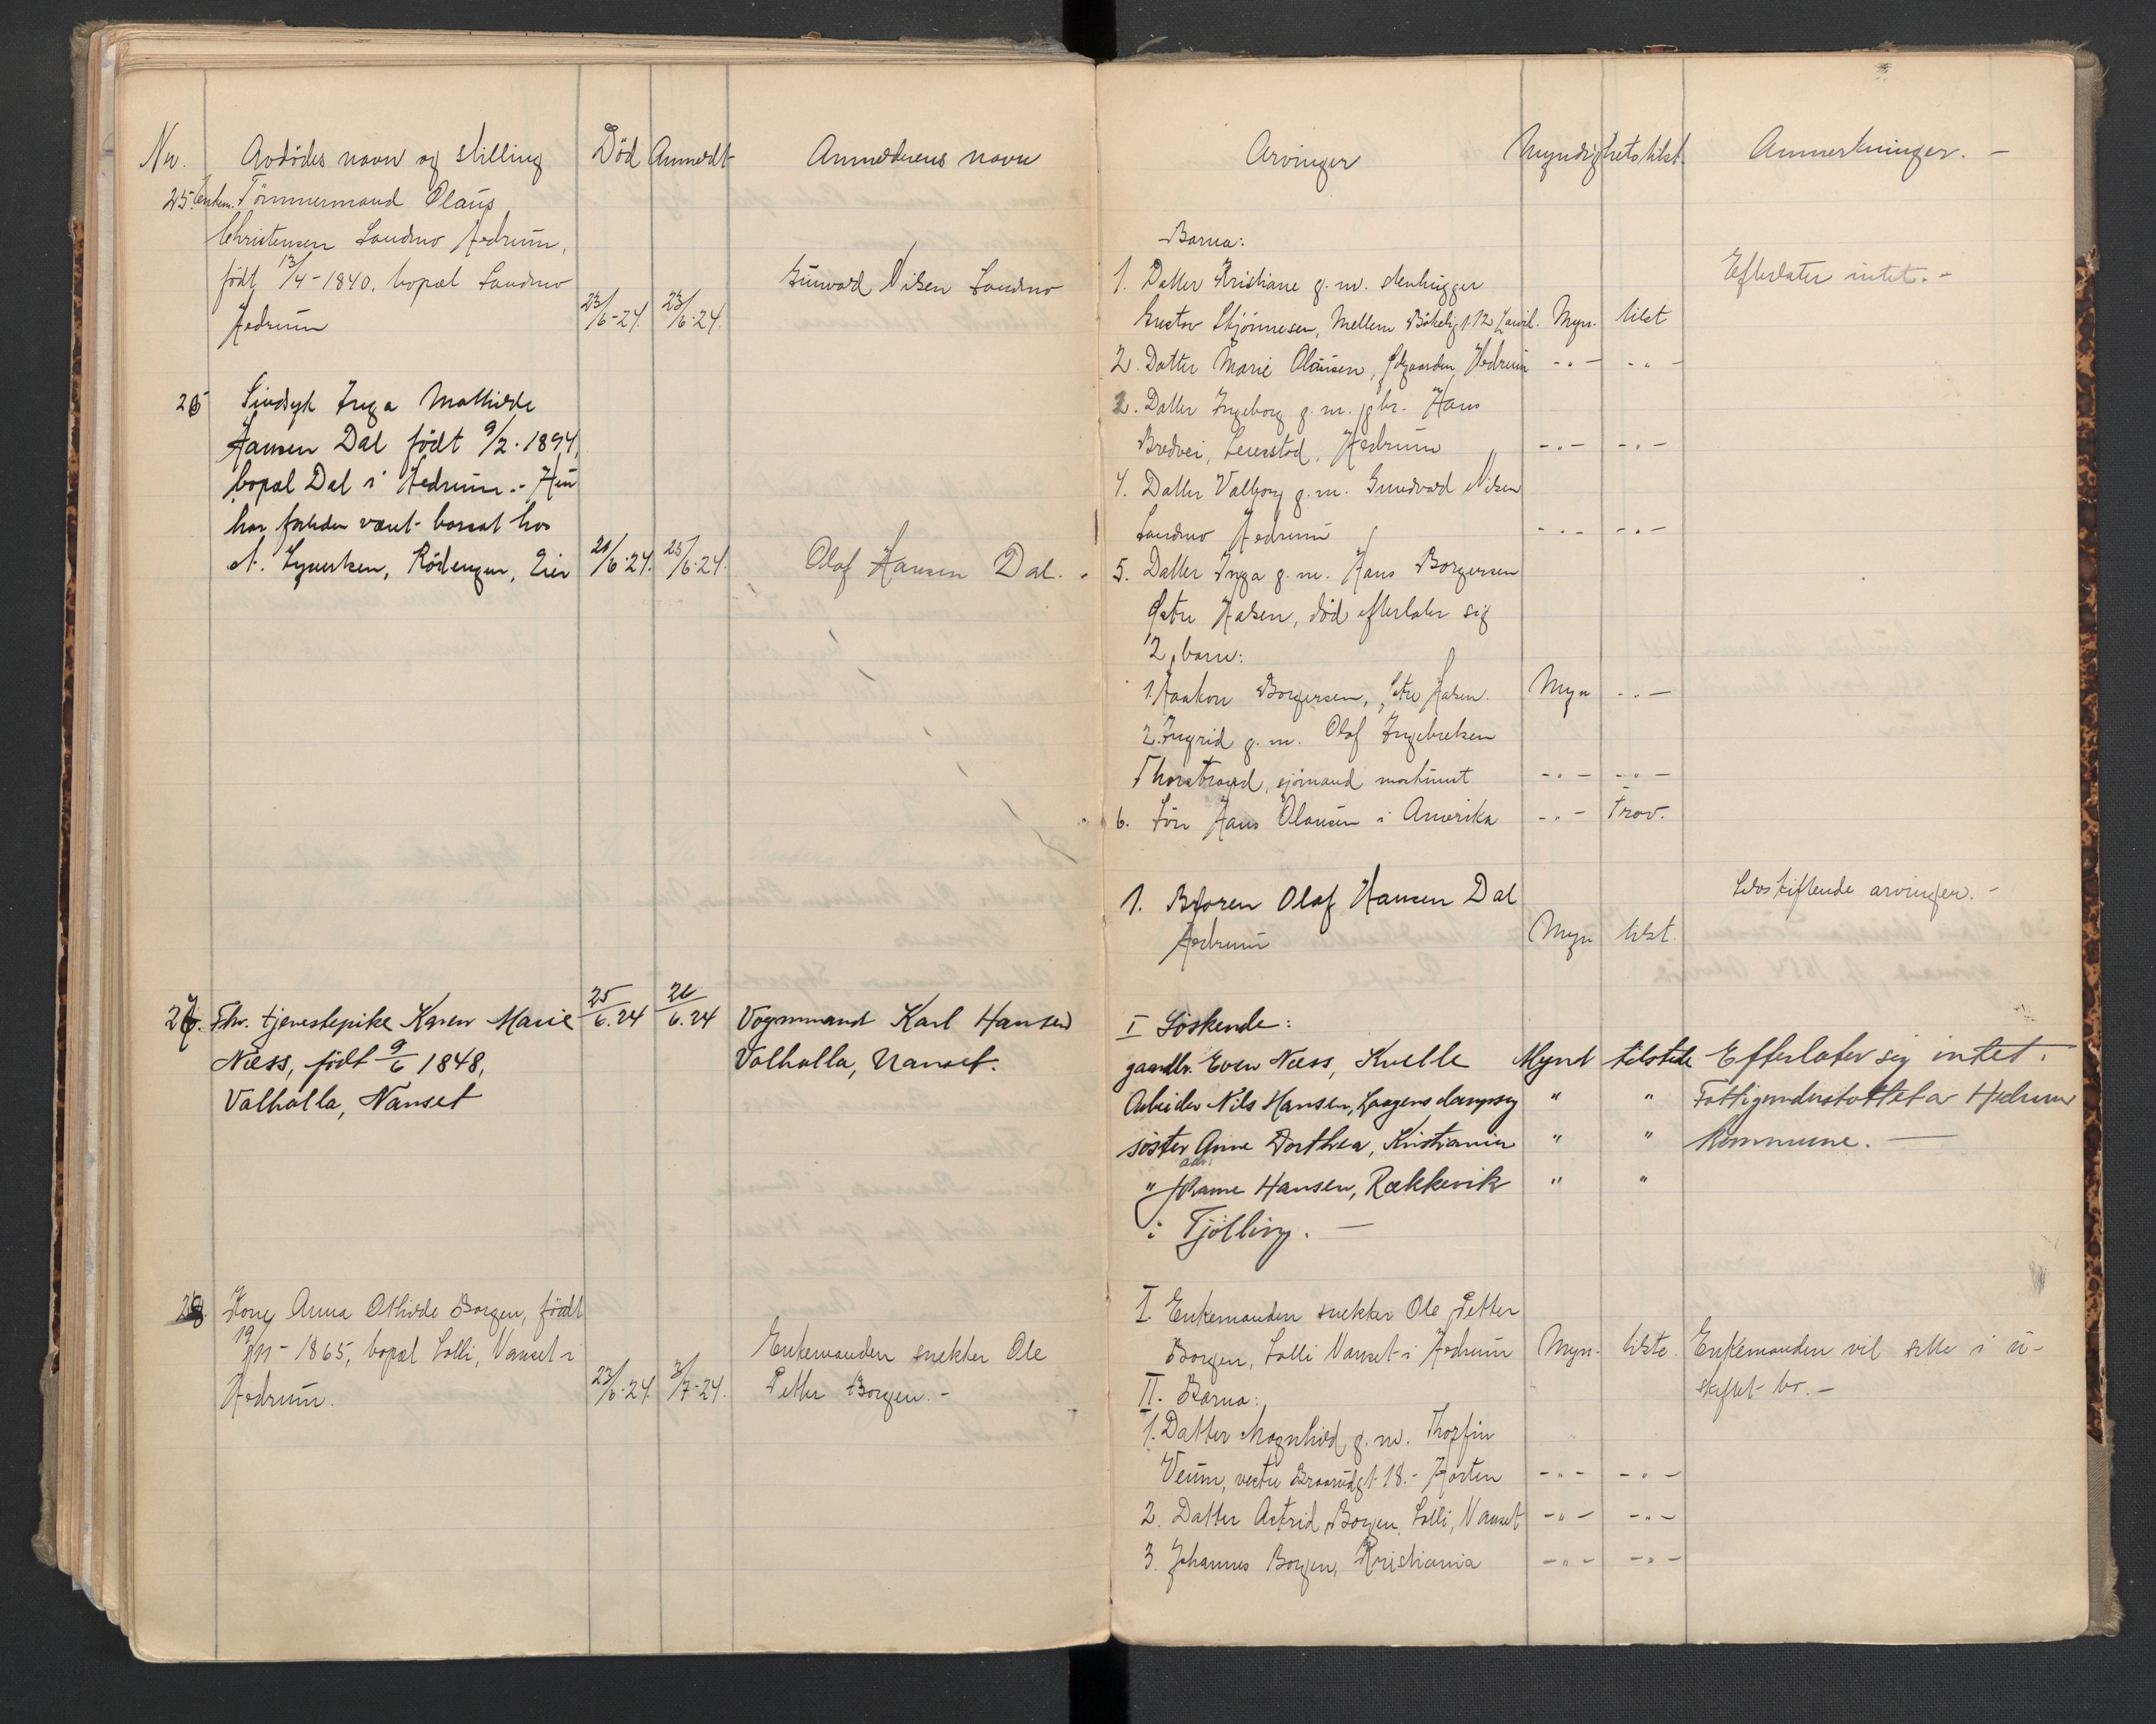 Nr. Avdødes navn og stilling Død Anmeldt Anmelderens navn
25. Enkem. Tømmermand Olaus
Christensen Sandmo Hedrum,
født 13/4 - 1840, bopæl Sandmo
Hedrum 23/6-24. 23/6-24.
Gunvald Nilsen Sandmo
26 Sindsyk Inga Mathilde
Hansen Dal født 9/2. 1894,
bopæl Dal i Hedrum. - Hun
har forleden vært bosat hos
A. Syvertsen, Rödengen, Eier 21/6-24. 25/6-24. Olaf Hansen Dal. -
27. Fhv. tjenestepike Karen Marie 25/6.24 26/6.24 Vognmand Karl Hansen
Næss, født 9/6 1848, Valhalla, Nanset.
Valhalla, Nanset
28. Kone Anna Othilde Borgen, født
19/11 - 1865, bopæl Solli, Nanset i Enkemanden snekker Ole
Hedrum. 23/6-24. 3/7-24. Petter Borgen. -
Arvinger Myndighets tilst. Anmerkninger. -
Barna:
1. Datter Kristiane g. m. stenhugger Efterlater intet. -
Gustav Skjönnesen, Mellem Bökelig. 12 Larvik. Myn. tilst
2. Datter Marie Olausen, Hedrum -"- -"-
3. Datter Ingeborg g. m. gbr. Hans
Bredvei, Hedrum -"- -"-
4. Datter Valborg g. m. Gundvald Nilsen
Sandmo Hedrum -"- -"-
5. Datter Inga g. m. Hans Borgersen
Østre Halsen, död efterlater sig
2 barn:
1. Haakon Borgersen, Østre Halsen. Myn -"-
2. Ingrid g. m. Olaf Ingebretsen
Thorstrand, sjömand -"- -"-
6. Sön Hans Olausen i Amerika -"- Frav.
1. Broren Olaf Hansen Dal Selvskiftende arvinger. -
Hedrum Myn tilst.
I Söskende:
gaardbr. Even Næss, Kvelle Mynd tilstede Efterlater sig intet.
Arbeider Nils Hansen, Laagens dampsag " " Fattigunderstöttet av Hedrum
söster Anne Dorthea, Kristiania " " kommune. —
" Johanne Hansen, Rækkevik " "
i Tjölling. —
I. Enkemanden snekker Ole Petter
Borgen, Solli Nanset i Hedrum Myn. tilste. Enkemanden vil sitte i u-
II. Barna: skiftet bo. -
1. Datter Magnhild g. m. Thorfin
Veum, vestre Braarudgt. 18. - Horten -"- -"-
2. Datter Astrid Borgen, Solli, Nanset -"- -"-
3. Johannes Borgen, Kristiania -"- -"-